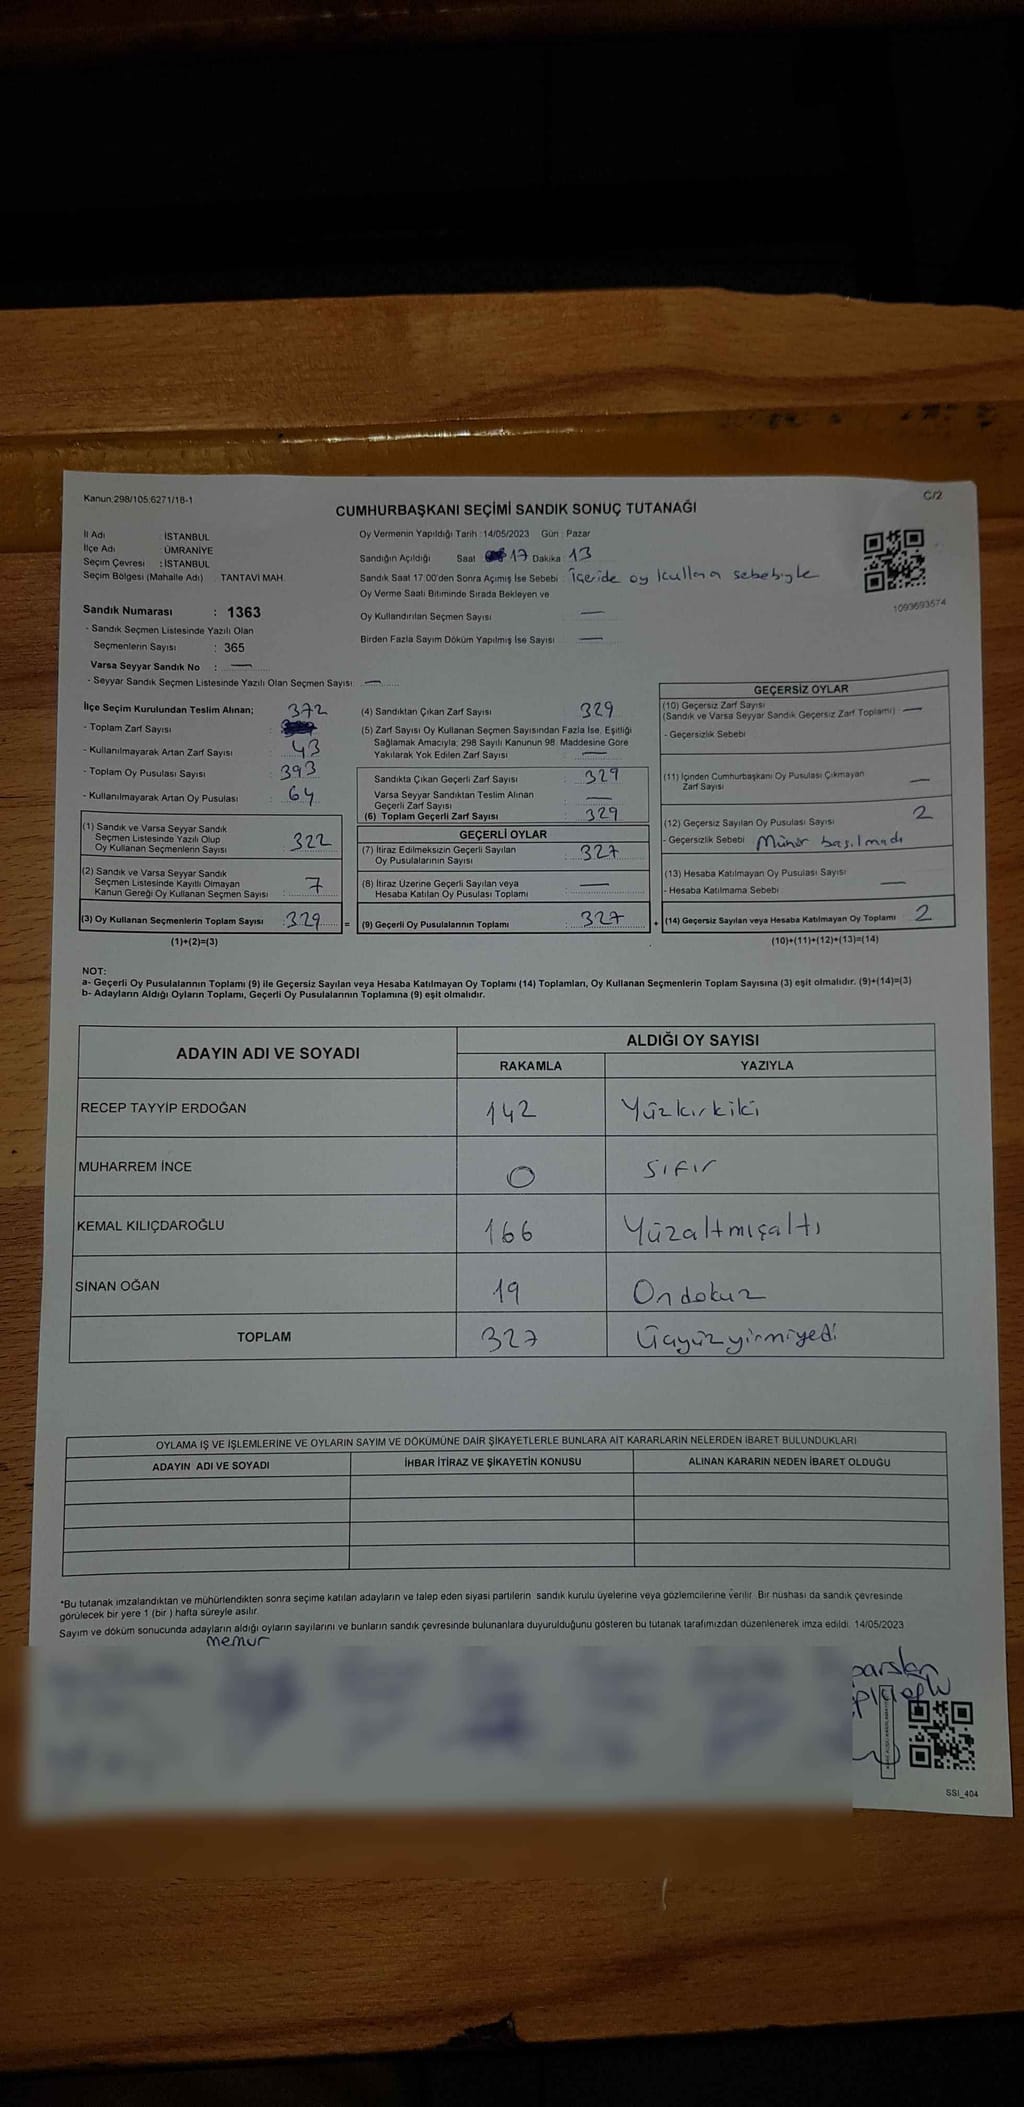 Kanun.298/105.6271/18-1
C/2
CUMHURBAŞKANI SEÇİMİ SANDIK SONUÇ TUTANAĞI
İl Adı : İSTANBUL
İlçe Adı : ÜMRANİYE
Seçim Çevresi : İSTANBUL
Seçim Bölgesi (Mahalle Adı) : TANTAVİ MAH.
Sandık Numarası : 1363
- Sandık Seçmen Listesinde Yazılı Olan
Seçmenlerin Sayısı : 365
Varsa Seyyar Sandık No : —
- Seyyar Sandık Seçmen Listesinde Yazılı Olan Seçmen Sayısı : —
Oy Vermenin Yapıldığı Tarih : 14/05/2023 Gün : Pazar
Sandığın Açıldığı Saat 17 Dakika : 13
Sandık Saat 17:00'den Sonra Açımış İse Sebebi : İçeride oy kullana sebebiyle
Oy Verme Saati Bitiminde Sırada Bekleyen ve
Oy Kullandırılan Seçmen Sayısı : —
Birden Fazla Sayım Döküm Yapılmış İse Sayısı : —
1093693574
İlçe Seçim Kurulundan Teslim Alınan; 372
- Toplam Zarf Sayısı :
- Kullanılmayarak Artan Zarf Sayısı : 43
- Toplam Oy Pusulası Sayısı : 393
- Kullanılmayarak Artan Oy Pusulası : 64
(1) Sandık ve Varsa Seyyar Sandık
Seçmen Listesinde Yazılı Olup
Oy Kullanan Seçmenlerin Sayısı : 322
(2) Sandık ve Varsa Seyyar Sandık
Seçmen Listesinde Kayıtlı Olmayan
Kanun Gereği Oy Kullanan Seçmen Sayısı : 7
(3) Oy Kullanan Seçmenlerin Toplam Sayısı : 329 =
(1)+(2)=(3)
(4) Sandıktan Çıkan Zarf Sayısı : 329
(5) Zarf Sayısı Oy Kullanan Seçmen Sayısından Fazla İse, Eşitliği
Sağlamak Amacıyla; 298 Sayılı Kanunun 98. Maddesine Göre
Yakılarak Yok Edilen Zarf Sayısı : —
Sandıkta Çıkan Geçerli Zarf Sayısı : 329
Varsa Seyyar Sandıktan Teslim Alınan
Geçerli Zarf Sayısı : —
(6) Toplam Geçerli Zarf Sayısı : 329
GEÇERLİ OYLAR
(7) İtiraz Edilmeksizin Geçerli Sayılan
Oy Pusulalarının Sayısı : 327
(8) İtiraz Üzerine Geçerli Sayılan veya
Hesaba Katılan Oy Pusulası Toplamı : —
(9) Geçerli Oy Pusulalarının Toplamı : 327 +
GEÇERSİZ OYLAR
(10) Geçersiz Zarf Sayısı
(Sandık ve Varsa Seyyar Sandık Geçersiz Zarf Toplamı) —
- Geçersizlik Sebebi
(11) İçinden Cumhurbaşkanı Oy Pusulası Çıkmayan
Zarf Sayısı —
(12) Geçersiz Sayılan Oy Pusulası Sayısı 2
- Geçersizlik Sebebi Mühür basılmadı
(13) Hesaba Katılmayan Oy Pusulası Sayısı —
- Hesaba Katılmama Sebebi
(14) Geçersiz Sayılan veya Hesaba Katılmayan Oy Toplamı 2
(10)+(11)+(12)+(13)=(14)
NOT:
a- Geçerli Oy Pusulalarının Toplamı (9) ile Geçersiz Sayılan veya Hesaba Katılmayan Oy Toplamı (14) Toplamları, Oy Kullanan Seçmenlerin Toplam Sayısına (3) eşit olmalıdır. (9)+(14)=(3)
b- Adayların Aldığı Oyların Toplamı, Geçerli Oy Pusulalarının Toplamına (9) eşit olmalıdır.
ADAYIN ADI VE SOYADI
ALDIĞI OY SAYISI
RAKAMLA YAZIYLA
RECEP TAYYİP ERDOĞAN 142 Yüzkırkiki
MUHARREM İNCE 0 Sıfır
KEMAL KILIÇDAROĞLU 166 Yüzaltmışaltı
SİNAN OĞAN 19 Ondokuz
TOPLAM 327 Üçyüzyirmiyedi
OYLAMA İŞ VE İŞLEMLERİNE VE OYLARIN SAYIM VE DÖKÜMÜNE DAİR ŞİKAYETLERLE BUNLARA AİT KARARLARIN NELERDEN İBARET BULUNDUKLARI
ADAYIN ADI VE SOYADI İHBAR İTİRAZ VE ŞİKAYETİN KONUSU ALINAN KARARIN NEDEN İBARET OLDUĞU
*Bu tutanak imzalandıktan ve mühürlendikten sonra seçime katılan adayların ve talep eden siyasi partilerin sandık kurulu üyelerine veya gözlemcilerine verilir. Bir nüshası da sandık çevresinde
görülecek bir yere 1 (bir ) hafta süreyle asılır.
Sayım ve döküm sonucunda adayların aldığı oyların sayılarını ve bunların sandık çevresinde bulunanlara duyurulduğunu gösteren bu tutanak tarafımızdan düzenlenerek imza edildi. 14/05/2023
memur
SSİ_404